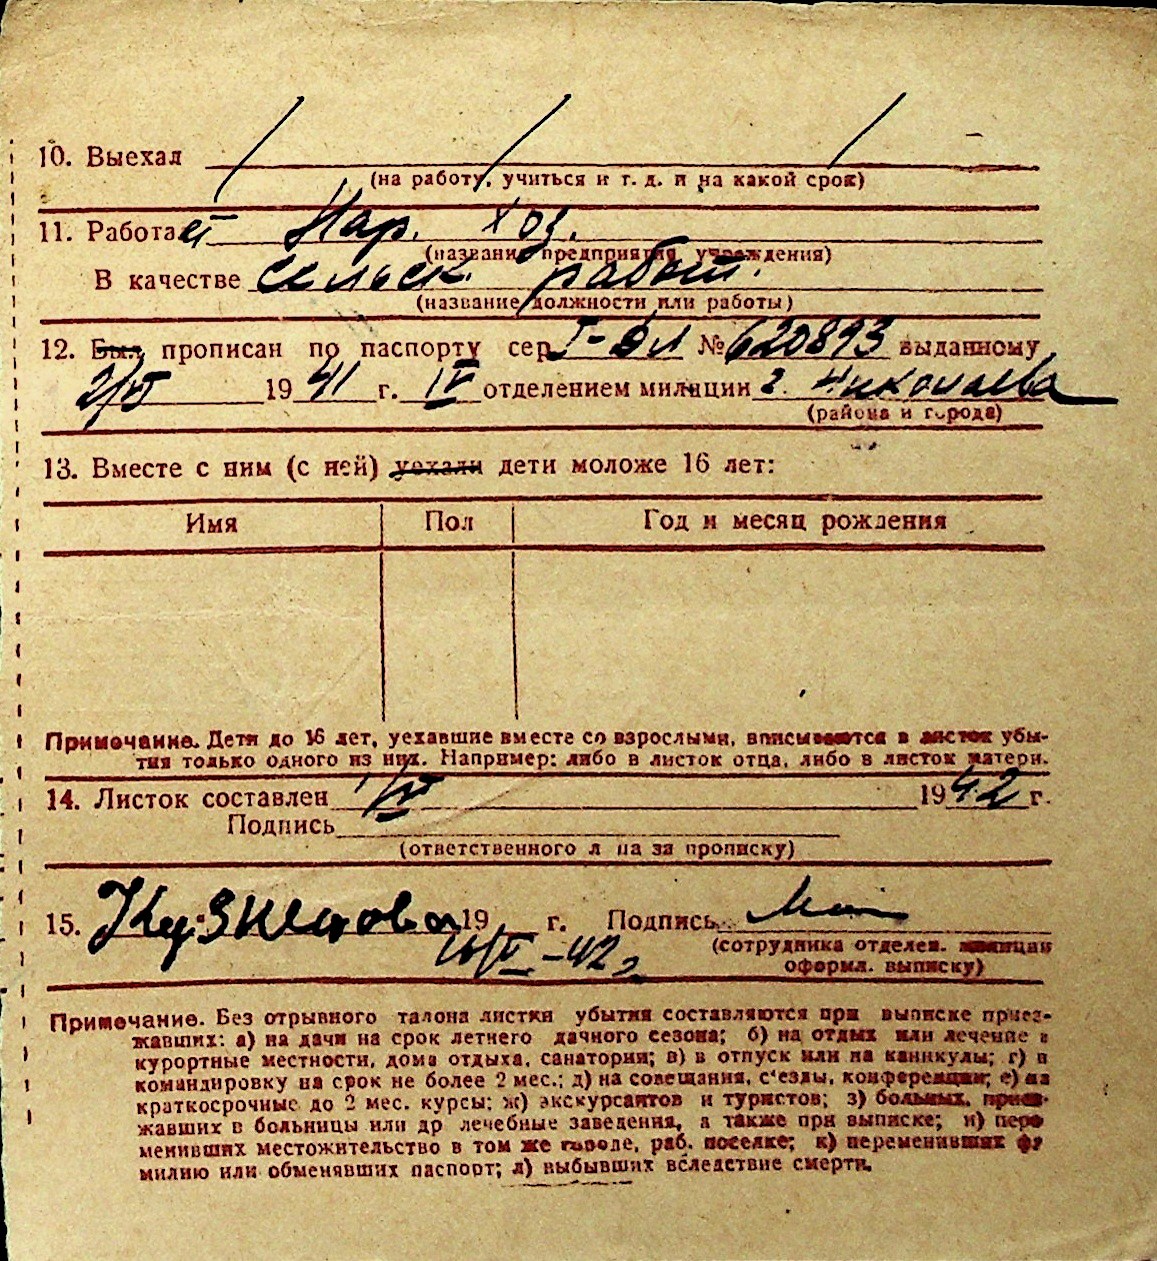 10. Выехал
(на работу, учиться и т. д. и на какой срок)
11. Работает Нар. хоз.
(название предприятия, учреждения)
В качестве сельск. работ.
(название должности или работы)
12. Был прописан по паспорту сер. № 620893 выданному
1941 г. IV отделением милиции г. Николаева
(района и города)
13. Вместе с ним (с ней) уехали дети моложе 16 лет:
Имя Пол Год и месяц рождения
Примечание. Дети до 16 лет, уехавшие вместе со взрослыми, вписываются в листок убы-
тия только одного из них. Например: либо в листок отца, либо в листок матери.
14. Листок составлен 1942 г.
Подпись
(ответственного л ца за прописку)
15. Кузнецова 19 г. Подпись
-42г
(сотрудника отделен. милиции
оформл. выписку)
Примечание. Без отрывного талона листки убытия составляются при выписке приез-
жавших: а) на дачи на срок летнего дачного сезона; б) на отдых или лечение в
курортные местности, дома отдыха, санатории; в) в отпуск или на каникулы; г) в
командировку на срок не более 2 мес.; д) на совещания, с'езды, конференции; е) на
краткосрочные до 2 мес. курсы; ж) экскурсантов и туристов; з) больных, приез-
жавших в больницы или др лечебные заведения, а также при выписке; и) пере
менивших местожительство в том же городе, раб. поселке; к) переменивших фа
милию или обменявших паспорт; л) выбывших вследствие смерти.